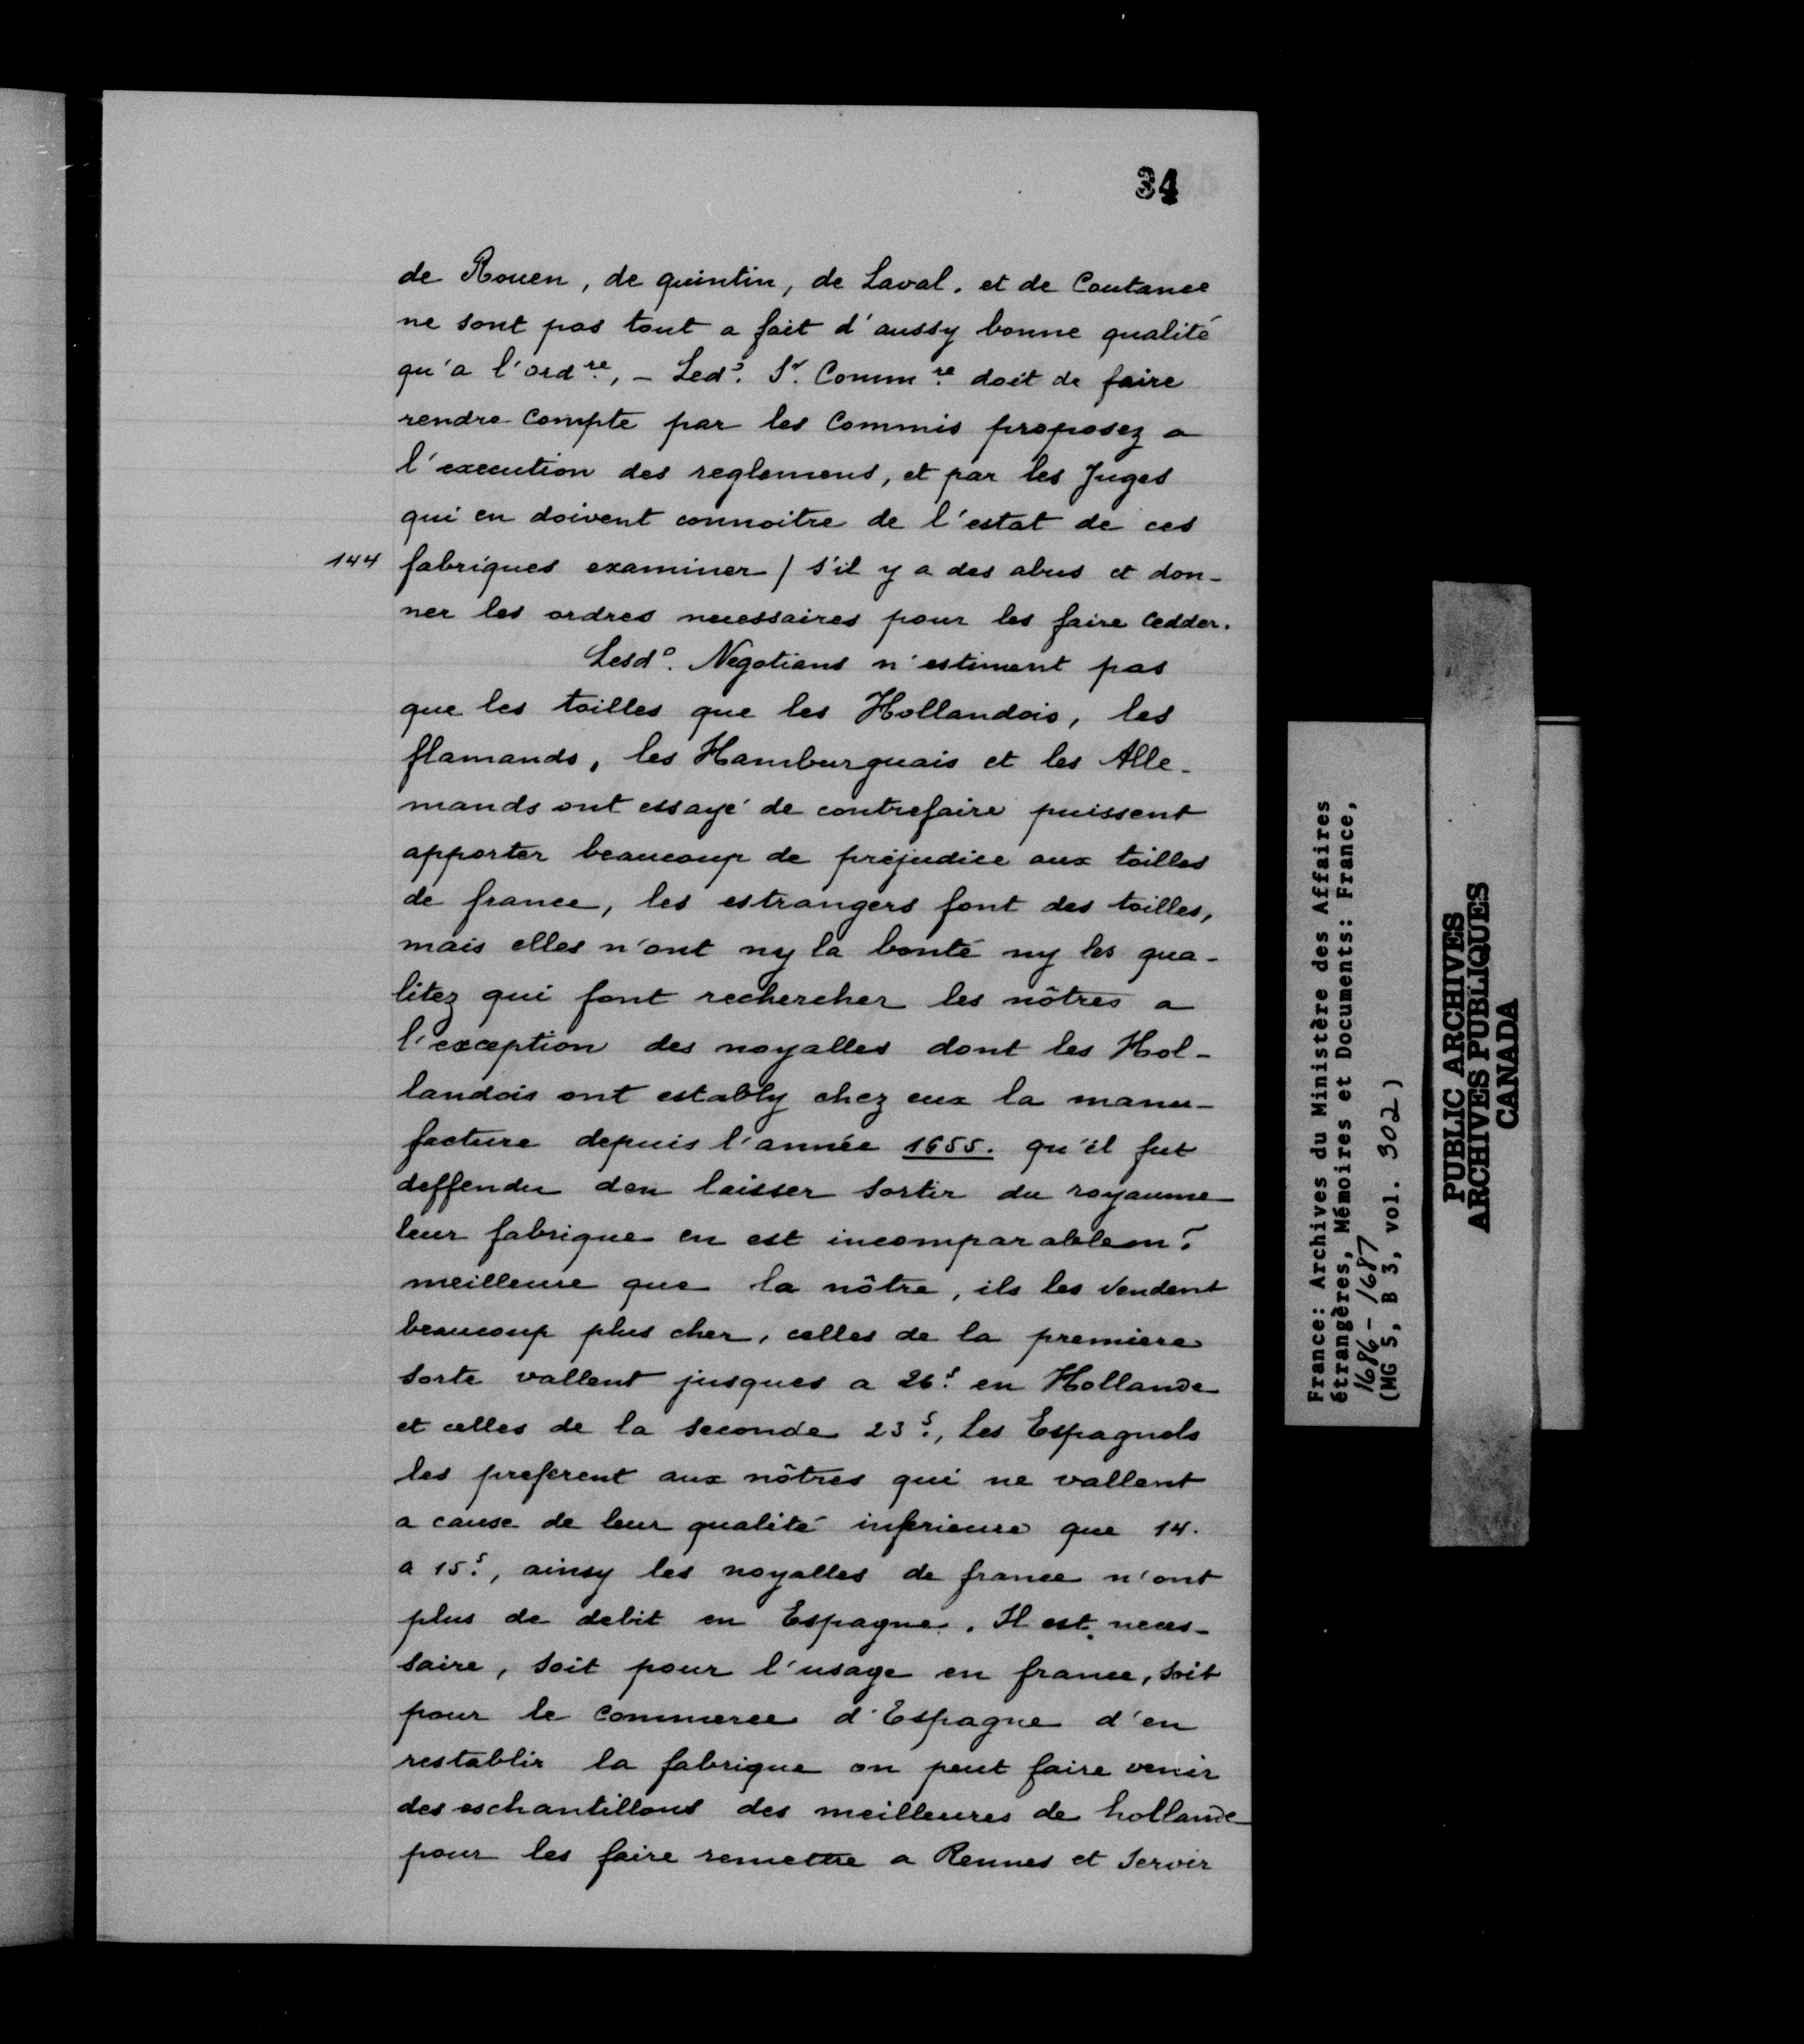 34
de Rouen, de quintin, de Laval. et de Coutance
ne sont pas tout a fait d'aussy bonne qualité
qu'a l'ordre, - Leds. Sr. Commre doit de faire
rendre Compte par les Commis proposez a
l'execution des reglemens, et par les Juges
qui en doivent connoitre de l'estat de ces
144 fabriques examiner / s'il y a des abus et don-
ner les ordres necessaires pour les faire Cedder.
Lesd. Negotians n'estiment pas
que les toilles que les Hollandois, les
flamands, les Hamburguais et les Alle-
mands ont essayé de contrefaire puissent
apporter beaucoup de préjudice aux toilles
de france, les estrangers font des toilles,
mais elles n'ont ny la bonté ny les qua-
litez qui font rechercher les nôtres a
l'exception des noyalles dont les Hol-
landois ont estably chez eux la manu-
facture depuis l'année 1655. qu'il fut
deffendu den laisser sortir du royaume
leur fabrique en est incomparablemt.
meilleure que la nôtre, ils les vendent
beaucoup plus cher, celles de la premiere
sorte vallent jusques a 26s. en Hollande
et celles de la seconde 23s., les Espagnols
les preferent aux nôtres qui ne vallent
a cause de leur qualité inferieure que 14.
a 15s., ainsy les noyalles de france n'ont
plus de debit en Espagne. Il est neces-
saire, soit pour l'usage en france, soit
pour le Commerce d'Espagne d'en
restablir la fabrique on peut faire venir
des eschantillons des meilleures de hollande
pour les faire remettre a Rennes et servir
France: Archives du Ministère des Affaires
étrangères, Mémoires et Documents: France,
1686-1687
(MG 5, B 3, vol. 302)
PUBLIC ARCHIVES
ARCHIVES PUBLIQUES
CANADA